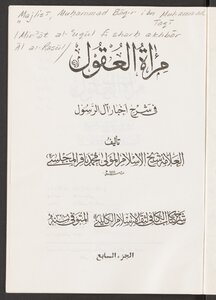 Majlisī, Muḥammad Bāqir ibn Muḥammad
Taqī
(Mir'āt al-'uqūl fī sharḥ akhbār
Āl al-Rasūl)
مرآة العقول
في شرح أخبار آل الرسول
تأليف
العلامة شيخ الإسلام المولى محمد باقر المجلسي
شرح كتاب الكافي لثقة الإسلام الكليني المتوفى سنة
الجزء السابع